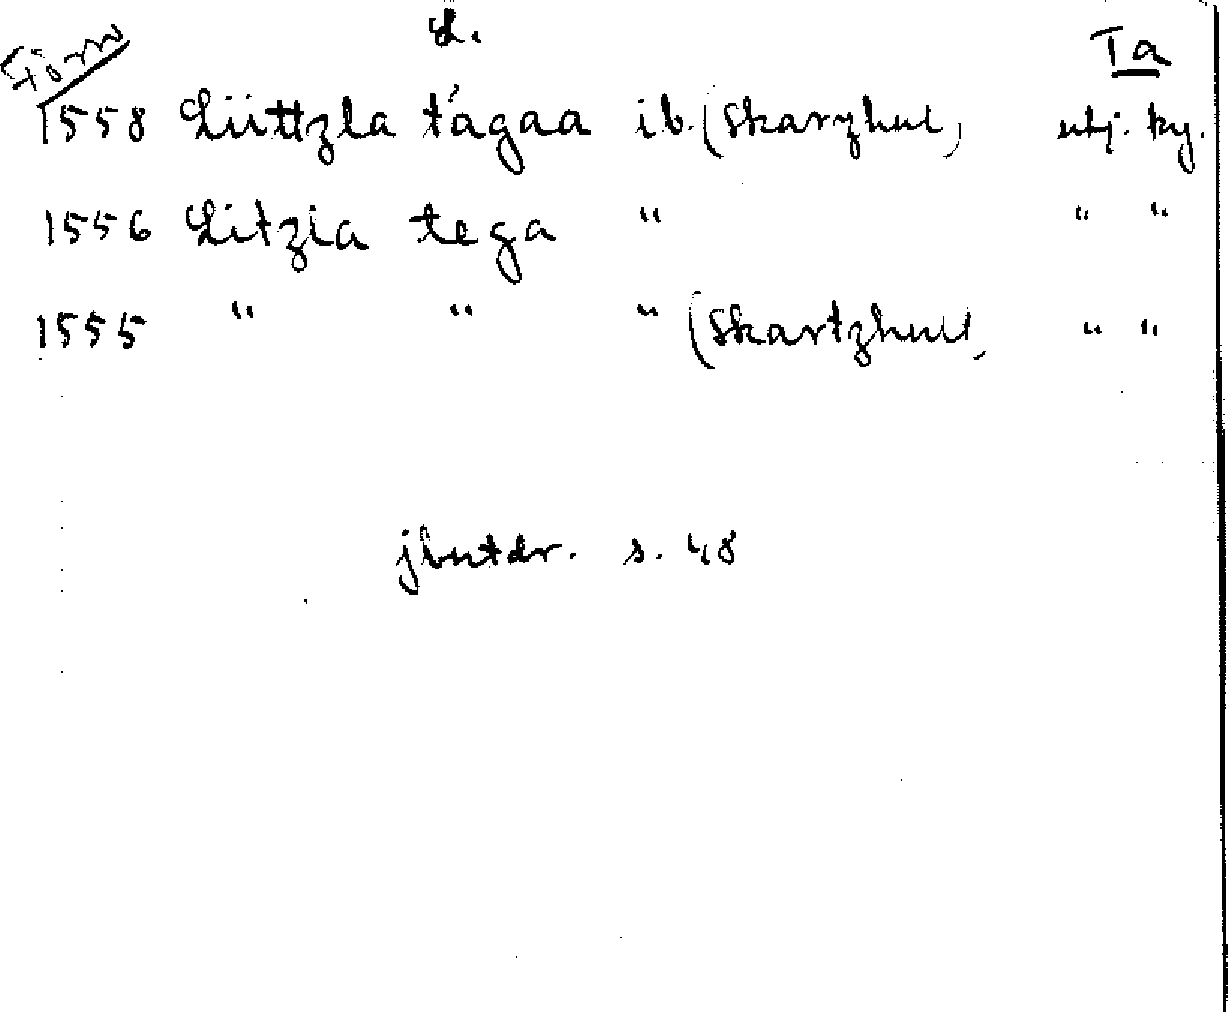 Törn L. Ta
1558 Lüttzla tágaa ib. (Skarzhul, utj. kg.
1556 Litzla tega " " "
1555 " " " (Skartzhull, " "
jbutdr. s. 48